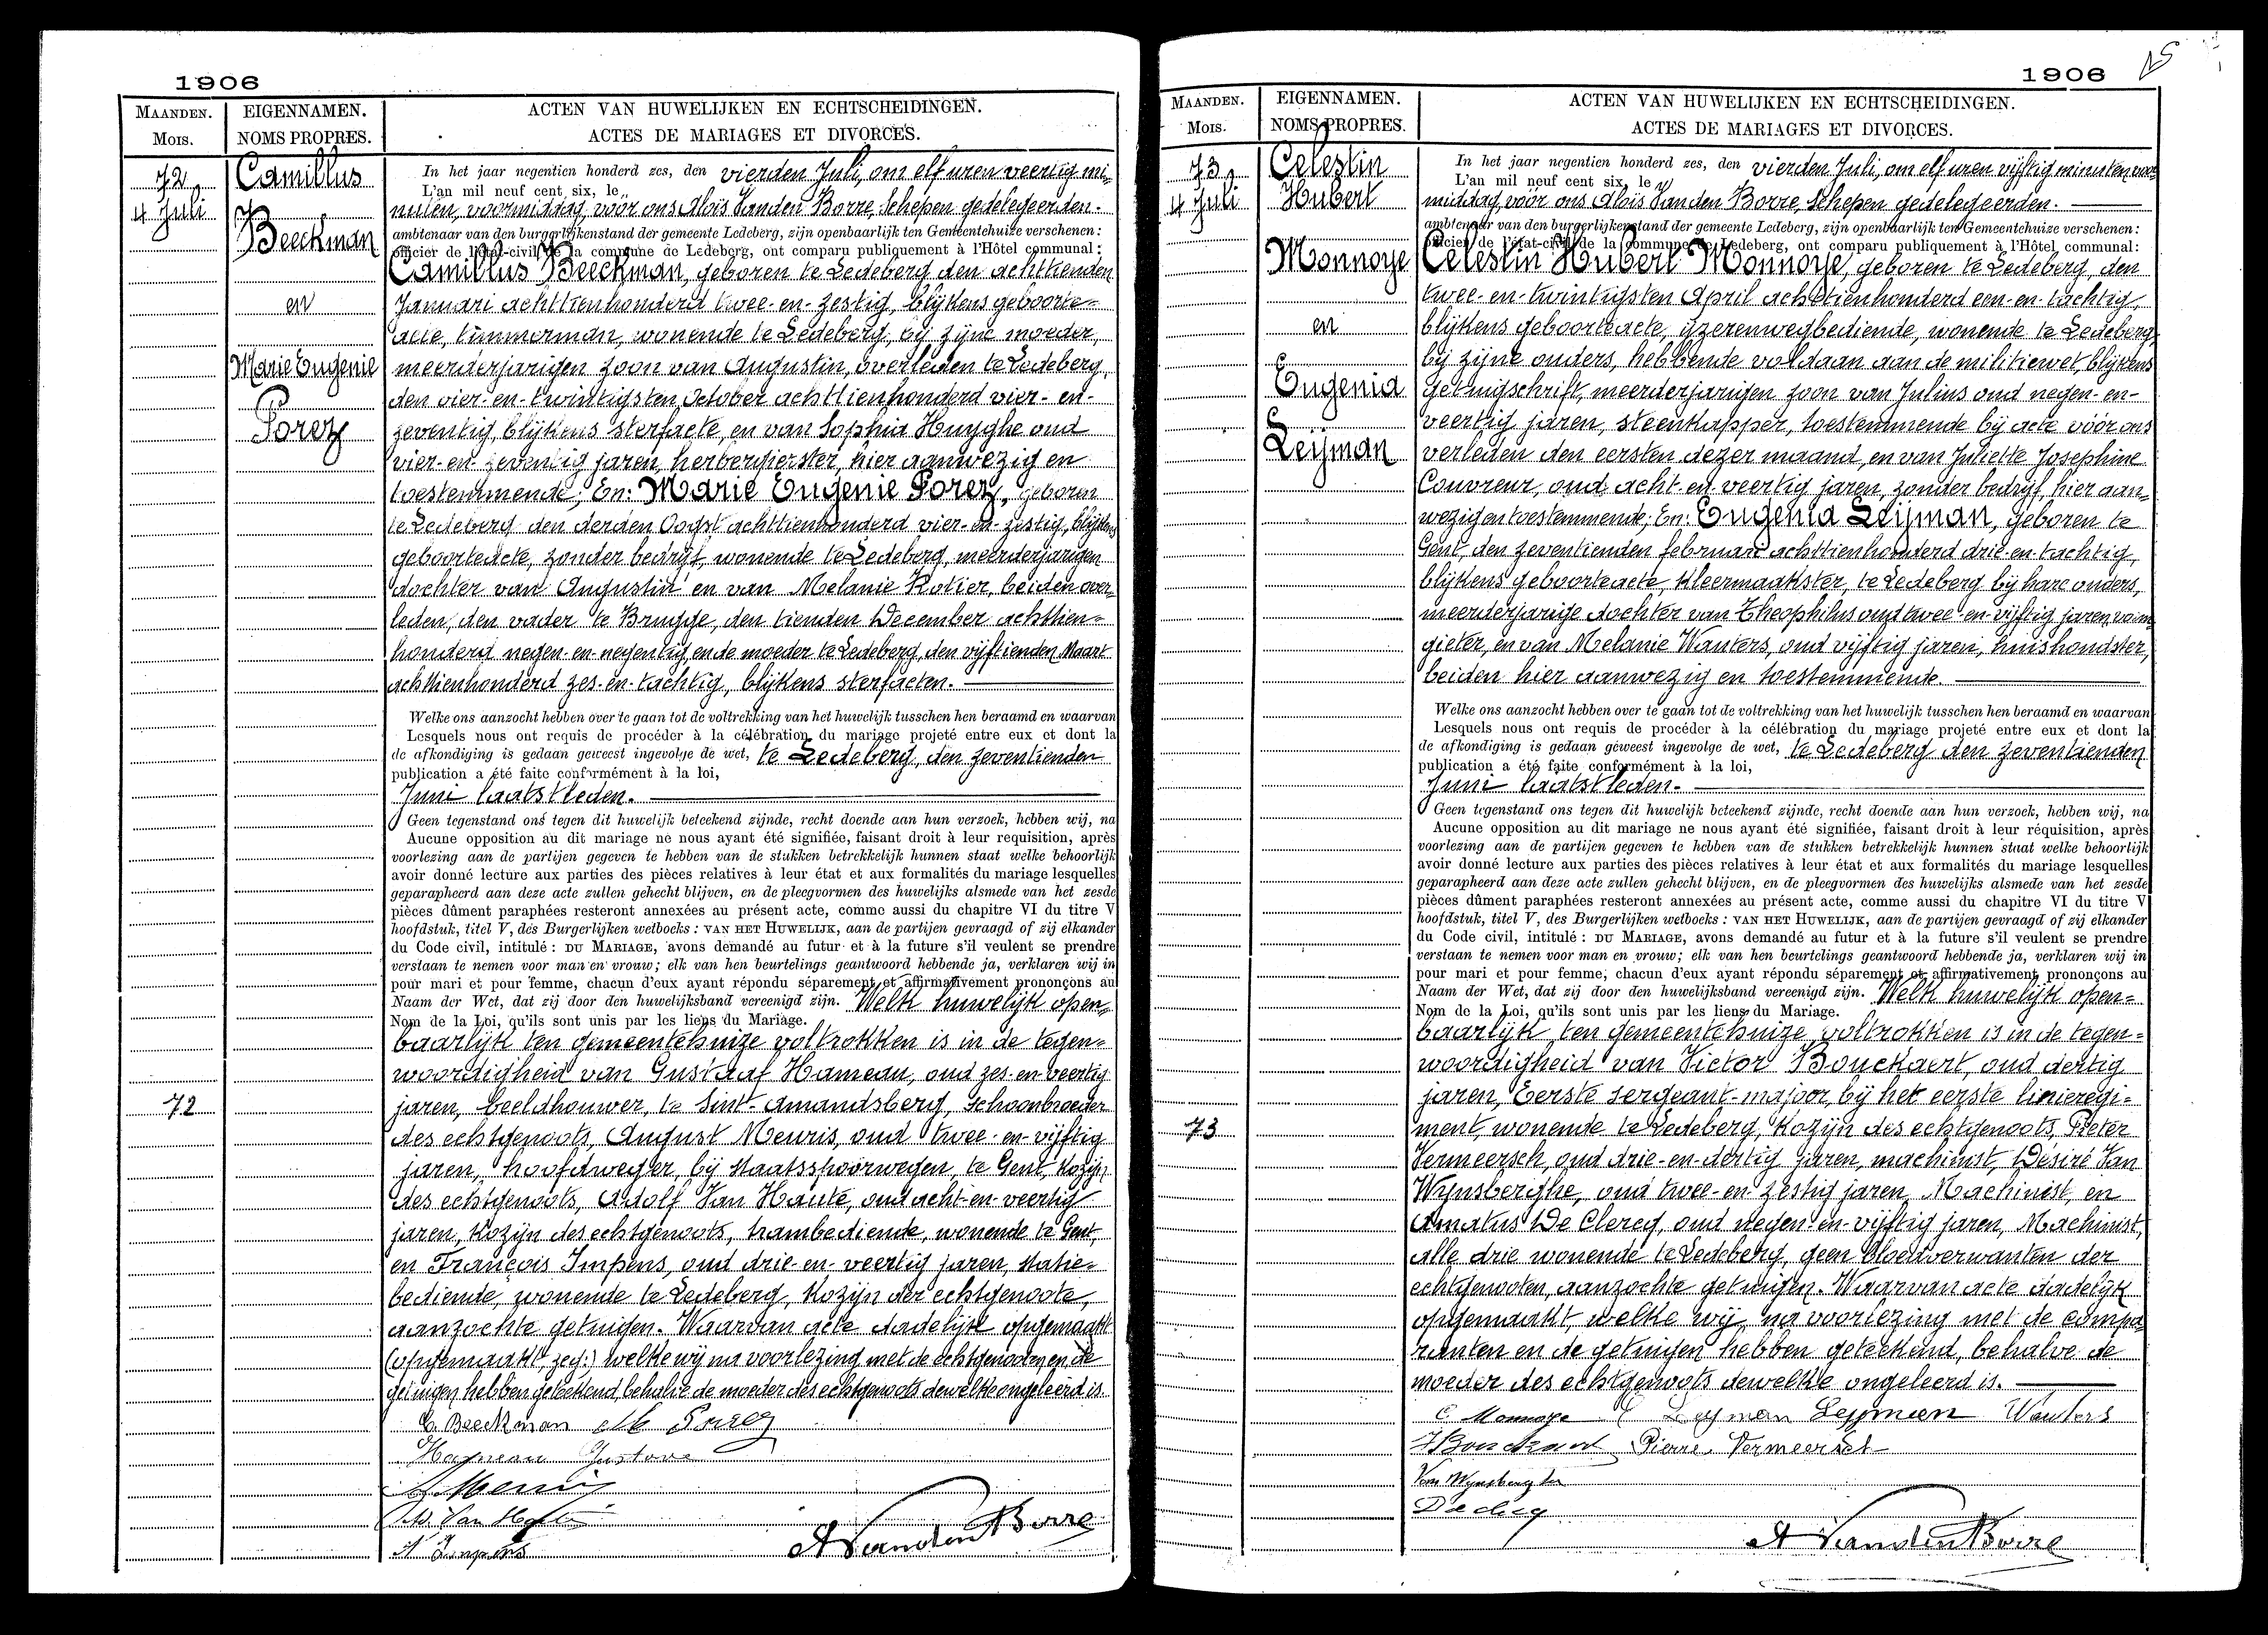 1906
MAANDEN.
Mois.
EIGENNAMEN.
NOMS PROPRES.
ACTEN VAN HUWELIJKEN EN ECHTSCHEIDINGEN.
ACTES DE MARIAGES ET DIVORCES.
72
4 Juli
Camillus
Beeckman
en
Marie Eugenie
Porez
In het jaar negentien honderd zes, den vierden Juli, om elf uren veertig mi=
L'an mil neuf cent six, le
nuten, voormiddag, vóór ons Aloïs Vanden Borre, Schepen gedelegeerden.
ambtenaar van den burgerlijkenstand der gemeente Ledeberg, zijn openbaarlijk ten Gemeentehuize verschenen:
officier de l'état-civil de la commune de Ledeberg, ont comparu publiquement à l'Hôtel communal:
Camillus Beeckman, geboren te Ledeberg, den achttienden
Januari achttienhonderd twee-en-zestig, blijkens geboorte=
acte, timmerman, wonende te Ledeberg, bij zijne moeder,
meerderjarigen zoon van Augustin, overleden te Ledeberg,
den vier-en-twintigsten October achttienhonderd vier-en-
zeventig, blijkens sterfacte, en van Sophia Huyghe oud
vier-en-zeventig jaren, herbergierster, hier aanwezig en
toestemmende; En: Marie Eugenie Porez, geboren
te Ledeberg, den derden Oogst achttienhonderd vier-en-zestig, blijkens
geboorteacte, zonder bedrijf, wonende te Ledeberg, meerderjarigen
dochter van Augustin en van Melanie Rotier, beiden over=
leden, den vader te Brugge, den tienden December achttien=
honderd negen-en-negentig, en de moeder te Ledeberg, den vijftienden Maart
achttienhonderd zes-en-tachtig, blijkens sterfacten.
Welke ons aanzocht hebben over te gaan tot de voltrekking van het huwelijk tusschen hen beraamd en waarvan
Lesquels nous ont requis de procéder à la célébration du mariage projeté entre eux et dont la
de afkondiging is gedaan geweest ingevolge de wet, te Ledeberg, den zeventienden
publication a été faite conformément à la loi,
Juni laatstleden.
Geen tegenstand ons tegen dit huwelijk beteekend zijnde, recht doende aan hun verzoek, hebben wij, na
Aucune opposition au dit mariage ne nous ayant été signifiée, faisant droit à leur requisition, après
voorlezing aan de partijen gegeven te hebben van de stukken betrekkelijk hunnen staat welke behoorlijk
avoir donné lecture aux parties des pièces relatives à leur état et aux formalités du mariage lesquelles
geparapheerd aan deze acte zullen gehecht blijven, en de pleegvormen des huwelijks alsmede van het zesde
pièces dûment paraphées resteront annexées au présent acte, comme aussi du chapitre VI du titre V
hoofdstuk, titel V, des Burgerlijken wetboeks: VAN HET HUWELIJK, aan de partijen gevraagd of zij elkander
du Code civil, intitulé: DU MARIAGE, avons demandé au futur et à la future s'il veulent se prendre
verstaan te nemen voor man en vrouw; elk van hen beurtelings geantwoord hebbende ja, verklaren wij in
pour mari et pour femme, chacun d'eux ayant répondu séparement et affirmativement prononçons au
Naam der Wet, dat zij door den huwelijksband vereenigd zijn. Welk huwelijk open=
Nom de la Loi, qu'ils sont unis par les liens du Mariage.
baarlijk ten gemeentehuize voltrokken is in de tegen=
woordigheid van Gustaaf Hameau, oud zes-en-veertig
72
jaren, beeldhouwer, te Sint-Amandsberg, schoonbroeder
des echtgenoots, August Meuris, oud twee-en-vijftig
jaren, hoofdweger, bij Staatsspoorwegen, te Gent, kozijn
des echtgenoots, Adolf Van Haute, oud acht-en-veertig
jaren, kozijn des echtgenoots, trambediende, wonende te Gent,
en François Impens, oud drie-en-veertig jaren, statie=
bediende, wonende te Ledeberg, kozijn der echtgenoote,
aanzochte getuigen. Waarvan acte dadelijk opgemaakt
(opgemaakt, zeg:) welke wij na voorlezing met de echtgenooten en de
getuigen hebben geteekend, behalve de moeder des echtgenoots dewelke ongeleerd is.
C. Beeckman M Porez
Hameau Gustave
Meuris
Ad. Van Haute
Impens
A VandenBorre
1906
MAANDEN.
Mois.
EIGENNAMEN.
NOMS PROPRES.
ACTEN VAN HUWELIJKEN EN ECHTSCHEIDINGEN.
ACTES DE MARIAGES ET DIVORCES.
73
4 Juli
Celestin
Hubert
Monnoye
en
Eugenia
Leijman
In het jaar negentien honderd zes, den vierden Juli, om elf uren vijftig minuten, voor=
L'an mil neuf cent six, le
middag, vóór ons Aloïs Vanden Borre, Schepen gedelegeerden.
ambtenaar van den burgerlijkenstand der gemeente Ledeberg, zijn openbaarlijk ten Gemeentehuize verschenen:
officier de l'état-civil de la commune de Ledeberg, ont comparu publiquement à l'Hôtel communal:
Celestin Hubert Monnoye, geboren te Ledeberg, den
twee-en-twintigsten April achttienhonderd een-en-tachtig,
blijkens geboorteacte, yzerenwegbediende, wonende te Ledeberg
bij zijne ouders, hebbende voldaan aan de militiewet, blijkens
getuigschrift, meerderjarigen zoon van Julius oud negen-en-
veertig jaren, steenkapper, toestemmende bij acte vóór ons
verleden den eersten dezer maand, en van Juliette Josephine
Couvreur, oud acht-en-veertig jaren, zonder bedrijf, hier aan=
wezig en toestemmende; En: Eugenia Leijman, geboren te
Gent, den zeventienden februari achttienhonderd drie-en-tachtig,
blijkens geboorteacte, kleermaakster, te Ledeberg bij hare ouders,
meerderjarige dochter van Theophilus oud twee-en-vijftig jaren, vorm=
gieter, en van Melanie Wauters, oud vijftig jaren, huishoudster,
beiden hier aanwezig en toestemmende.
Welke ons aanzocht hebben over te gaan tot de voltrekking van het huwelijk tusschen hen beraamd en waarvan
Lesquels nous ont requis de procéder à la célébration du mariage projeté entre eux et dont la
de afkondiging is gedaan geweest ingevolge de wet, te Ledeberg den zeventienden
publication a été faite conformément à la loi,
Juni laatstleden.
Geen tegenstand ons tegen dit huwelijk beteekend zijnde, recht doende aan hun verzoek, hebben wij, na
Aucune opposition au dit mariage ne nous ayant été signifiée, faisant droit à leur réquisition, après
voorlezing aan de partijen gegeven te hebben van de stukken betrekkelijk hunnen staat welke behoorlijk
avoir donné lecture aux parties des pièces relatives à leur état et aux formalités du mariage lesquelles
geparapheerd aan deze acte zullen gehecht blijven, en de pleegvormen des huwelijks alsmede van het zesde
pièces dûment paraphées resteront annexées au présent acte, comme aussi du chapitre VI du titre V
hoofdstuk, titel V, des Burgerlijken wetboeks: VAN HET HUWELIJK, aan de partijen gevraagd of zij elkander
du Code civil, intitulé: DU MARIAGE, avons demandé au futur et à la future s'il veulent se prendre
verstaan te nemen voor man en vrouw; elk van hen beurtelings geantwoord hebbende ja, verklaren wij in
pour mari et pour femme, chacun d'eux ayant répondu séparement et affirmativement prononçons au
Naam der Wet, dat zij door den huwelijksband vereenigd zijn. Welk huwelijk open=
Nom de la Loi, qu'ils sont unis par les liens du Mariage.
baarlijk ten gemeentehuize voltrokken is in de tegen=
woordigheid van Victor Bouckaert, oud dertig
jaren, Eerste sergeant-majoor, bij het eerste linieregi=
73
ment, wonende te Ledeberg, kozijn des echtgenoots, Pieter
Vermeersch, oud drie-en-dertig jaren, machinist, Désiré Van
Wynsberghe, oud twee-en-zestig jaren, Machinist, en
Amatus De Clercq, oud negen-en-vijftig jaren, Machinist,
alle drie wonende te Ledeberg, geen bloedverwanten der
echtgenooten, aanzochte getuigen. Waarvan acte dadelijk
opgemaakt, welke wij, na voorlezing met de compa=
ranten en de getuigen hebben geteekend, behalve de
moeder des echtgenoots dewelke ongeleerd is.
C Monnoye E Leyman Leyman Wauters
VBouckaert Pierre Vermeersch
Van Wynsberghe
Declercq
A VandenBorre